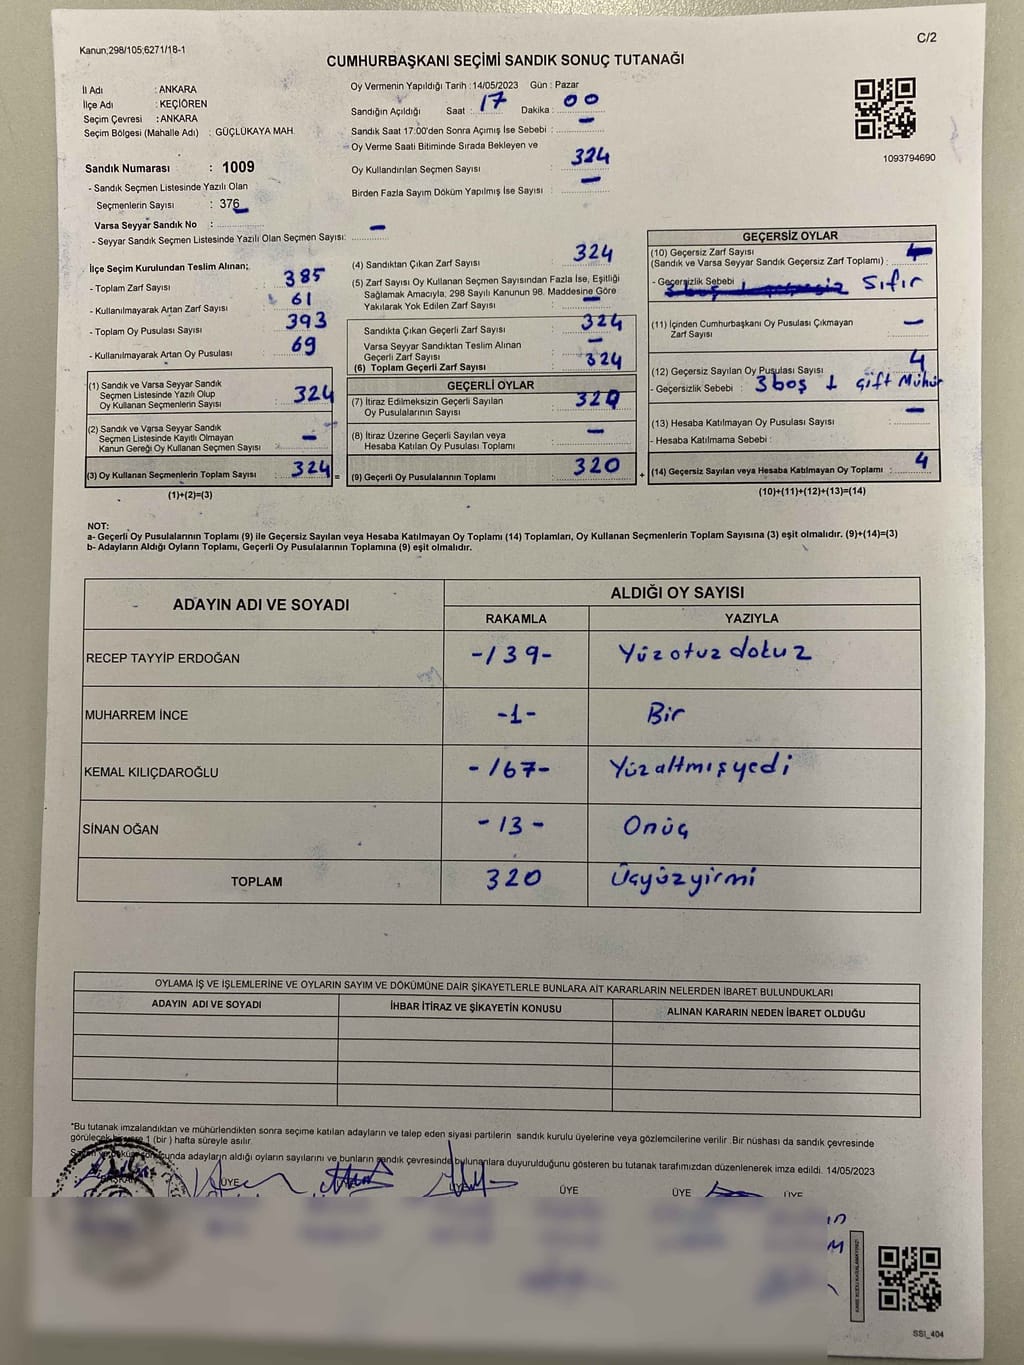 C/2
Kanun;298/105;6271/18-1
CUMHURBAŞKANI SEÇİMİ SANDIK SONUÇ TUTANAĞI
İl Adı : ANKARA
İlçe Adı : KEÇİÖREN
Seçim Çevresi : ANKARA
Seçim Bölgesi (Mahalle Adı) : GÜÇLÜKAYA MAH.
Sandık Numarası : 1009
- Sandık Seçmen Listesinde Yazılı Olan
Seçmenlerin Sayısı : 376
Varsa Seyyar Sandık No : –
- Seyyar Sandık Seçmen Listesinde Yazılı Olan Seçmen Sayısı:
Oy Vermenin Yapıldığı Tarih : 14/05/2023 Gün : Pazar
Sandığın Açıldığı Saat : 17 Dakika : 00
Sandık Saat 17:00'den Sonra Açımış İse Sebebi : –
Oy Verme Saati Bitiminde Sırada Bekleyen ve
Oy Kullandırılan Seçmen Sayısı : 324
Birden Fazla Sayım Döküm Yapılmış İse Sayısı : –
1093794690
İlçe Seçim Kurulundan Teslim Alınan;
- Toplam Zarf Sayısı : 385
- Kullanılmayarak Artan Zarf Sayısı : 61
- Toplam Oy Pusulası Sayısı : 393
- Kullanılmayarak Artan Oy Pusulası : 69
(1) Sandık ve Varsa Seyyar Sandık
Seçmen Listesinde Yazılı Olup
Oy Kullanan Seçmenlerin Sayısı : 324
(2) Sandık ve Varsa Seyyar Sandık
Seçmen Listesinde Kayıtlı Olmayan
Kanun Gereği Oy Kullanan Seçmen Sayısı : –
(3) Oy Kullanan Seçmenlerin Toplam Sayısı : 324 =
(1)+(2)=(3)
(4) Sandıktan Çıkan Zarf Sayısı : 324
(5) Zarf Sayısı Oy Kullanan Seçmen Sayısından Fazla İse, Eşitliği
Sağlamak Amacıyla, 298 Sayılı Kanunun 98. Maddesine Göre
Yakılarak Yok Edilen Zarf Sayısı : –
Sandıkta Çıkan Geçerli Zarf Sayısı : 324
Varsa Seyyar Sandıktan Teslim Alınan
Geçerli Zarf Sayısı : –
(6) Toplam Geçerli Zarf Sayısı : 324
GEÇERLİ OYLAR
(7) İtiraz Edilmeksizin Geçerli Sayılan
Oy Pusulalarının Sayısı : 320
(8) İtiraz Üzerine Geçerli Sayılan veya
Hesaba Katılan Oy Pusulası Toplamı : –
(9) Geçerli Oy Pusulalarının Toplamı : 320 +
GEÇERSİZ OYLAR
(10) Geçersiz Zarf Sayısı
(Sandık ve Varsa Seyyar Sandık Geçersiz Zarf Toplamı) :
- Geçersizlik Sebebi Sıfır
(11) İçinden Cumhurbaşkanı Oy Pusulası Çıkmayan
Zarf Sayısı : –
(12) Geçersiz Sayılan Oy Pusulası Sayısı : 4
- Geçersizlik Sebebi : 3 boş 1 çift Mühür
(13) Hesaba Katılmayan Oy Pusulası Sayısı : –
- Hesaba Katılmama Sebebi :
(14) Geçersiz Sayılan veya Hesaba Katılmayan Oy Toplamı : 4
(10)+(11)+(12)+(13)=(14)
NOT:
a- Geçerli Oy Pusulalarının Toplamı (9) ile Geçersiz Sayılan veya Hesaba Katılmayan Oy Toplamı (14) Toplamları, Oy Kullanan Seçmenlerin Toplam Sayısına (3) eşit olmalıdır. (9)+(14)=(3)
b- Adayların Aldığı Oyların Toplamı, Geçerli Oy Pusulalarının Toplamına (9) eşit olmalıdır.
ADAYIN ADI VE SOYADI ALDIĞI OY SAYISI
RAKAMLA YAZIYLA
RECEP TAYYİP ERDOĞAN -139- Yüzotuzdokuz
MUHARREM İNCE -1- Bir
KEMAL KILIÇDAROĞLU -167- Yüzaltmışyedi
SİNAN OĞAN -13- Onüç
TOPLAM 320 Üçyüzyirmi
OYLAMA İŞ VE İŞLEMLERİNE VE OYLARIN SAYIM VE DÖKÜMÜNE DAİR ŞİKAYETLERLE BUNLARA AİT KARARLARIN NELERDEN İBARET BULUNDUKLARI
ADAYIN ADI VE SOYADI İHBAR İTİRAZ VE ŞİKAYETİN KONUSU ALINAN KARARIN NEDEN İBARET OLDUĞU
*Bu tutanak imzalandıktan ve mühürlendikten sonra seçime katılan adayların ve talep eden siyasi partilerin sandık kurulu üyelerine veya gözlemcilerine verilir. Bir nüshası da sandık çevresinde
görülecek bir yere 1 (bir ) hafta süreyle asılır.
sonucunda adayların aldığı oyların sayılarını ve bunların sandık çevresinde bulunanlara duyurulduğunu gösteren bu tutanak tarafımızdan düzenlenerek imza edildi. 14/05/2023
BAŞKAN ÜYE ÜYE ÜYE ÜYE ÜYE
SSI_404